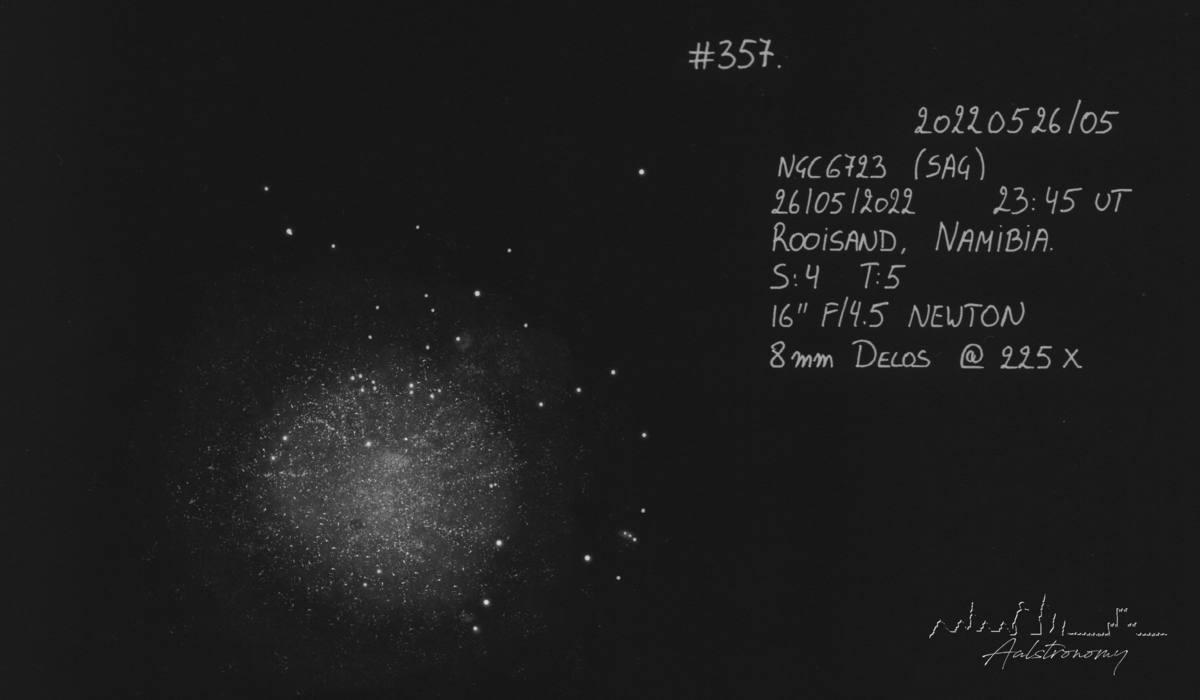 #357.
20220526/05
NGC6723 (SAG)
26/05/2022 23:45 UT
ROOISAND, NAMIBIA.
S:4 T:5
16" F/4.5 NEWTON
8mm DELOS @ 225 X
Aalstronomy